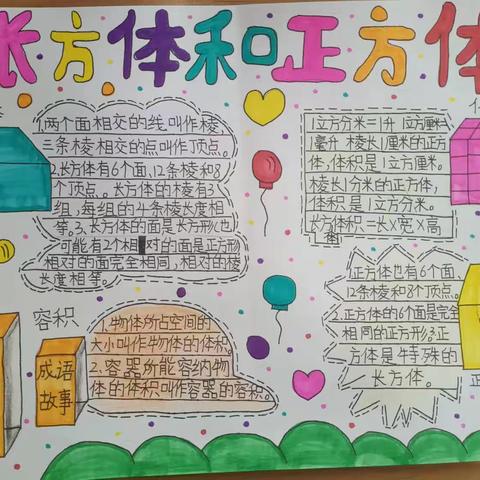 长方体和正方体
1.两个面相交的线叫作棱,
三条棱相交的点叫作顶点。
2.长方体有6个面,12条棱和8
个顶点。长方体的棱有3
组,每组的4条棱长度相
等。3.长方体的面是长方形(也
可能有2个相对的面是正方形
相对的面完全相同,相对的棱
长度相等。
1立方分米=1升 1立方厘米=
1毫升 棱长1厘米的正方
体,体积是1立方厘米。
棱长1分米的正方体,
体积是1立方分米。
长方体体积=长×宽×高
正方体也有6个面,
12条棱和8个顶点。
2.正方体的6个面是完全
相同的正方形。3.正
方体是特殊的
长方体。
容积
成语
故事
1.物体所占空间的
大小叫作物体的体积。
2.容器所能容纳物
体的体积叫作容器的容积。
正